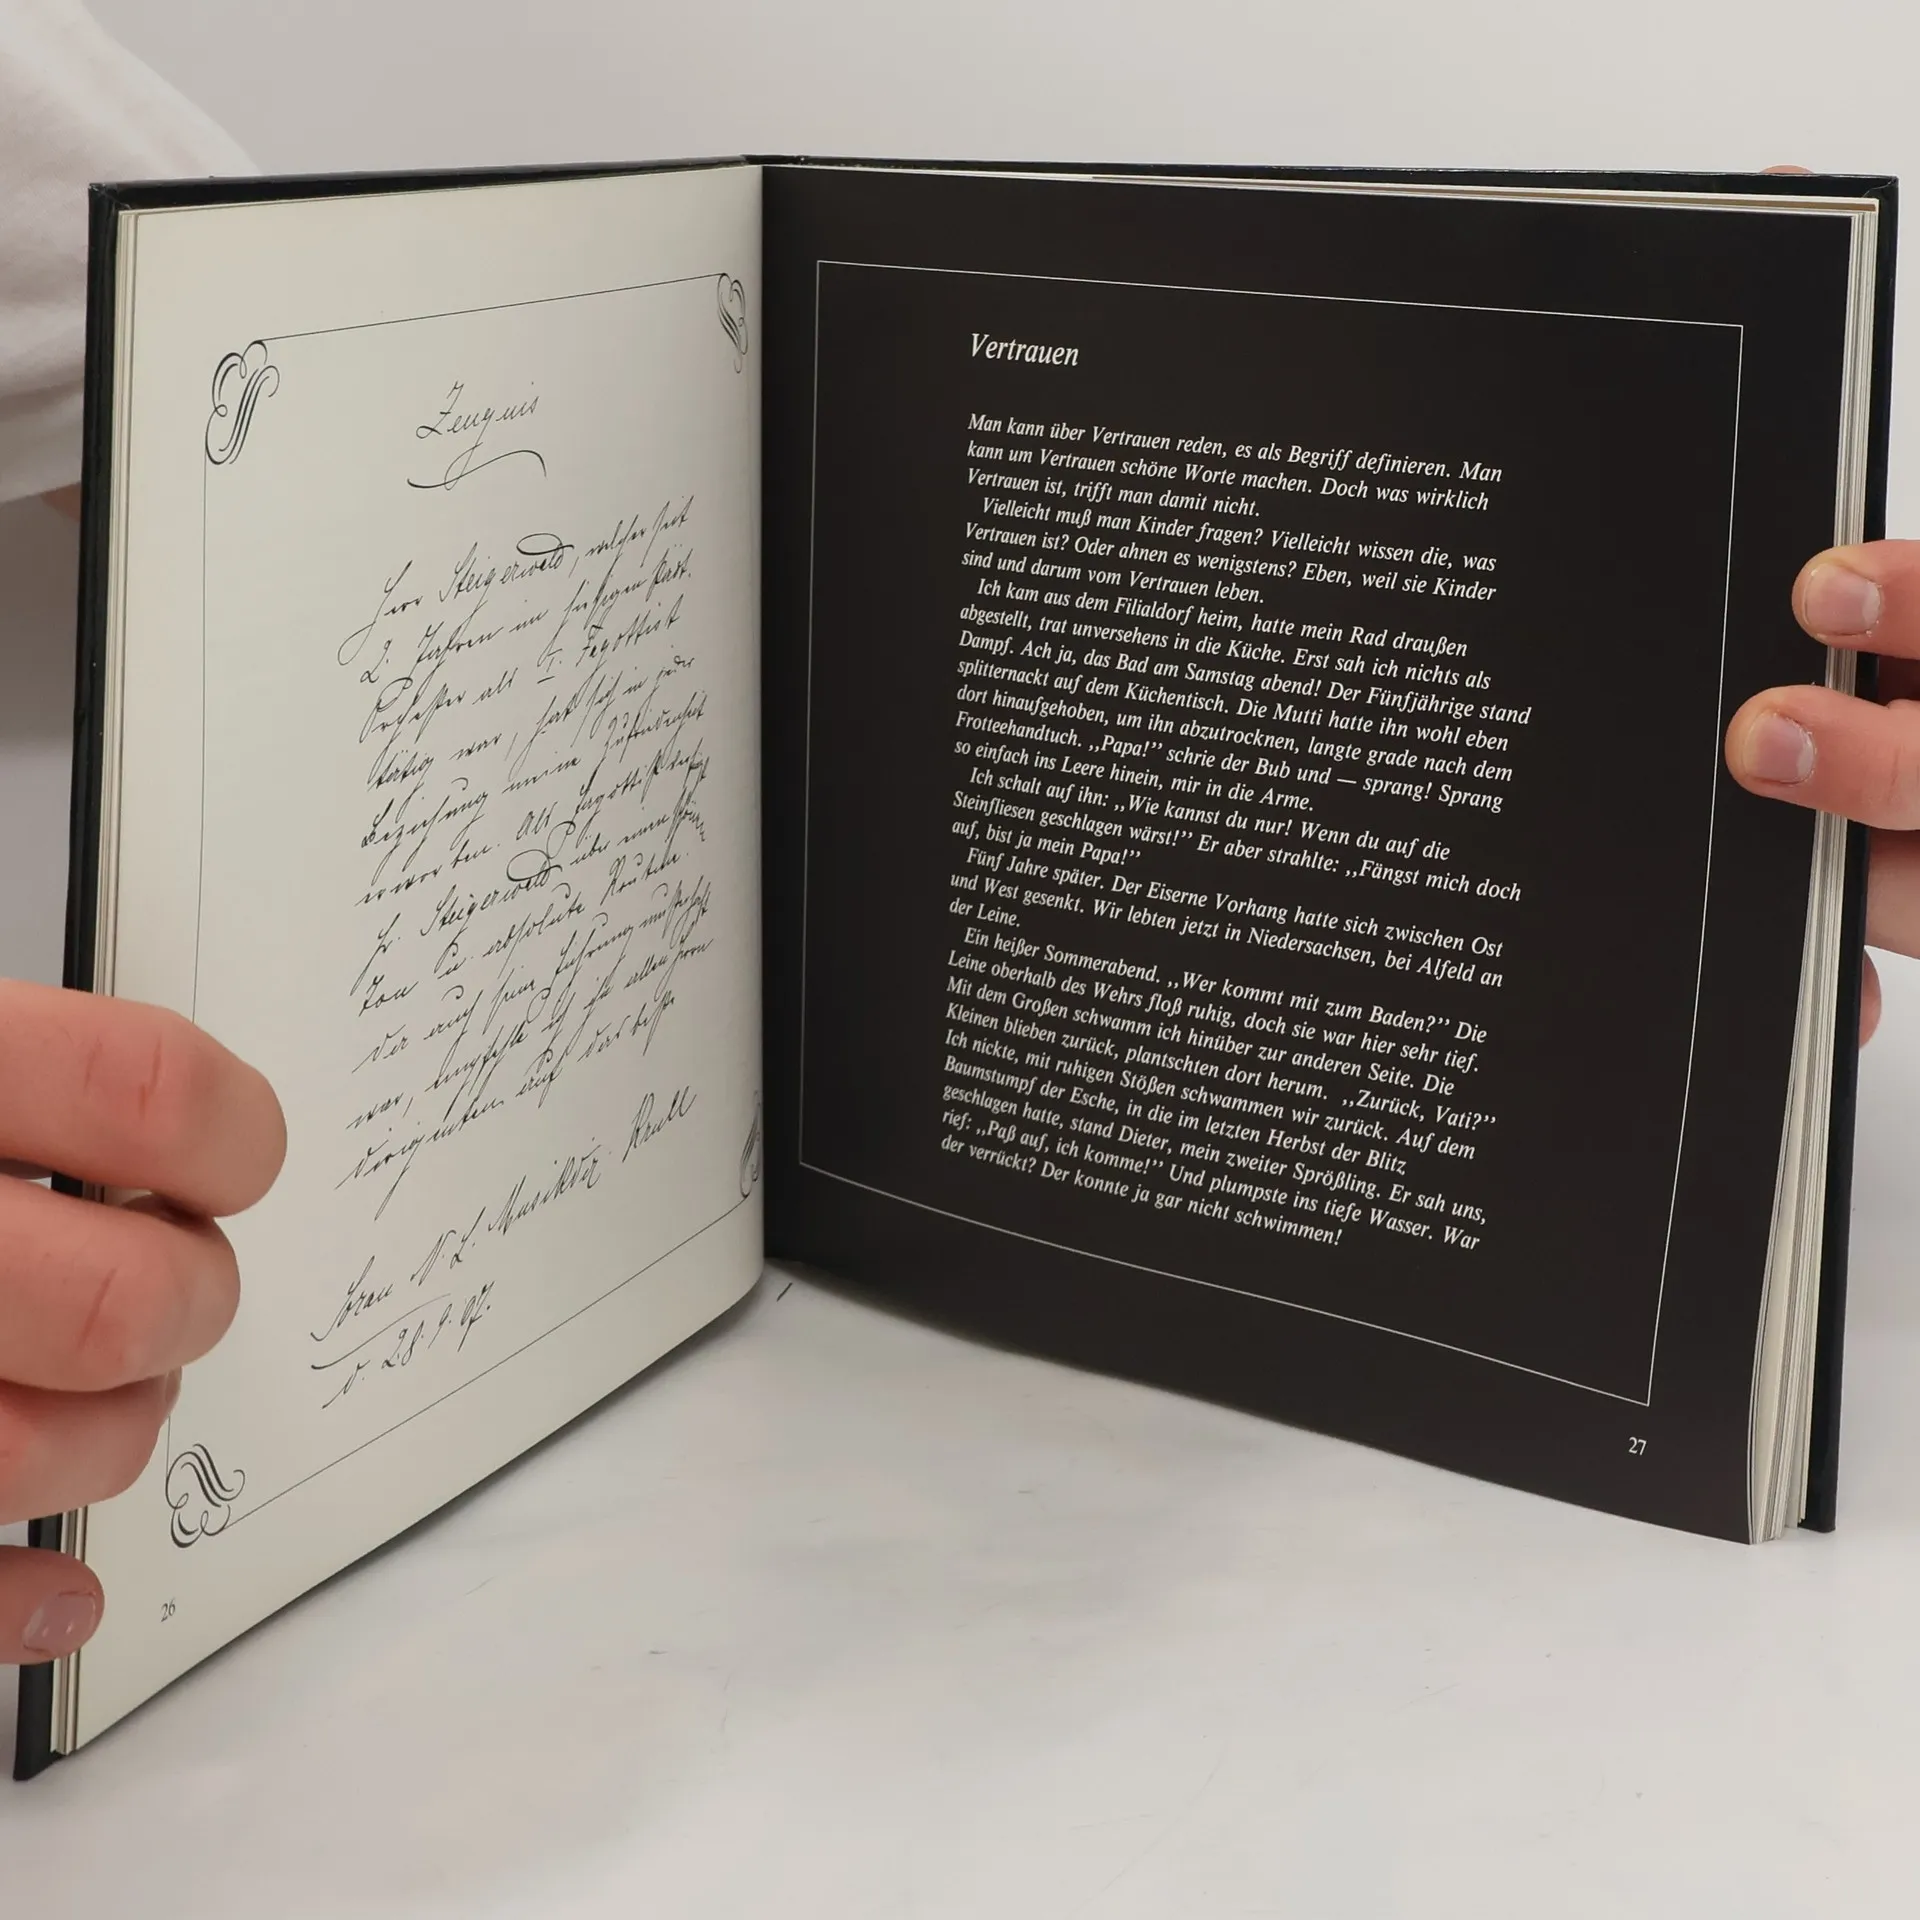 Zeugnis
Herr Steigerwald, welcher seit
2. Jahren im hiesigen städt.
Orchester als I. Fagottist
tätig war, hat sich in jeder
Beziehung meine Zufriedenheit
erworben. Als Fagottist verfügt
Hr. Steigerwald über einen schönen
Ton u. absolute Routine.
Da auch seine Führung musterhaft
war, empfehle ich ihn allen Herrn
Dirigenten auf das beste
Musikdir. Krull
Sorau N. L.
d. 28. 9. 07.
26
Vertrauen
Man kann über Vertrauen reden, es als Begriff definieren. Man
kann um Vertrauen schöne Worte machen. Doch was wirklich
Vertrauen ist, trifft man damit nicht.
Vielleicht muß man Kinder fragen? Vielleicht wissen die, was
Vertrauen ist? Oder ahnen es wenigstens? Eben, weil sie Kinder
sind und darum vom Vertrauen leben.
Ich kam aus dem Filialdorf heim, hatte mein Rad draußen
abgestellt, trat unversehens in die Küche. Erst sah ich nichts als
Dampf. Ach ja, das Bad am Samstag abend! Der Fünfjährige stand
splitternackt auf dem Küchentisch. Die Mutti hatte ihn wohl eben
dort hinaufgehoben, um ihn abzutrocknen, langte grade nach dem
Frotteehandtuch. ,,Papa!’’ schrie der Bub und — sprang! Sprang
so einfach ins Leere hinein, mir in die Arme.
Ich schalt auf ihn: ,,Wie kannst du nur! Wenn du auf die
Steinfliesen geschlagen wärst!’’ Er aber strahlte: ,,Fängst mich doch
auf, bist ja mein Papa!’’
Fünf Jahre später. Der Eiserne Vorhang hatte sich zwischen Ost
und West gesenkt. Wir lebten jetzt in Niedersachsen, bei Alfeld an
der Leine.
Ein heißer Sommerabend. ,,Wer kommt mit zum Baden?’’ Die
Leine oberhalb des Wehrs floß ruhig, doch sie war hier sehr tief.
Mit dem Großen schwamm ich hinüber zur anderen Seite. Die
Kleinen blieben zurück, plantschten dort herum. ,,Zurück, Vati?’’
Ich nickte, mit ruhigen Stößen schwammen wir zurück. Auf dem
Baumstumpf der Esche, in die im letzten Herbst der Blitz
geschlagen hatte, stand Dieter, mein zweiter Sprößling. Er sah uns,
rief: ,,Paß auf, ich komme!’’ Und plumpste ins tiefe Wasser. War
der verrückt? Der konnte ja gar nicht schwimmen!
27